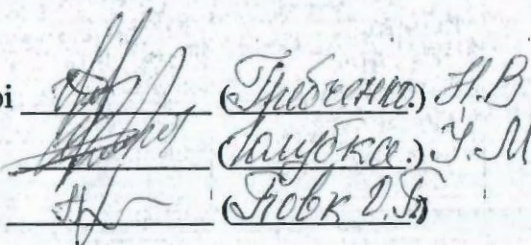 рі (Гребченко.) Н.В
(Голубка.) У.М
(Повк О.П)